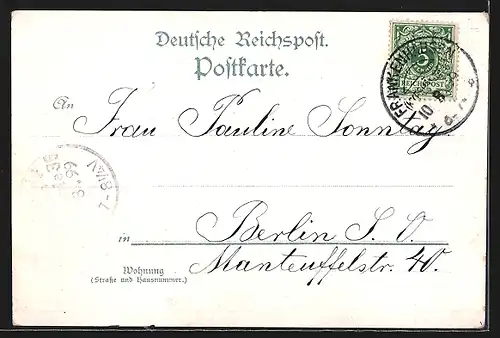 Deutsche Reichspost.
Postkarte.
5
REICHSPOST
FRANKENHAUSEN
10 8
6-7
An
Frau Pauline Sonntag.
7-8¼V
99
in
Berlin S. O.
Manteuffelstr. 40.
Wohnung
(Straße und Hausnummer.)